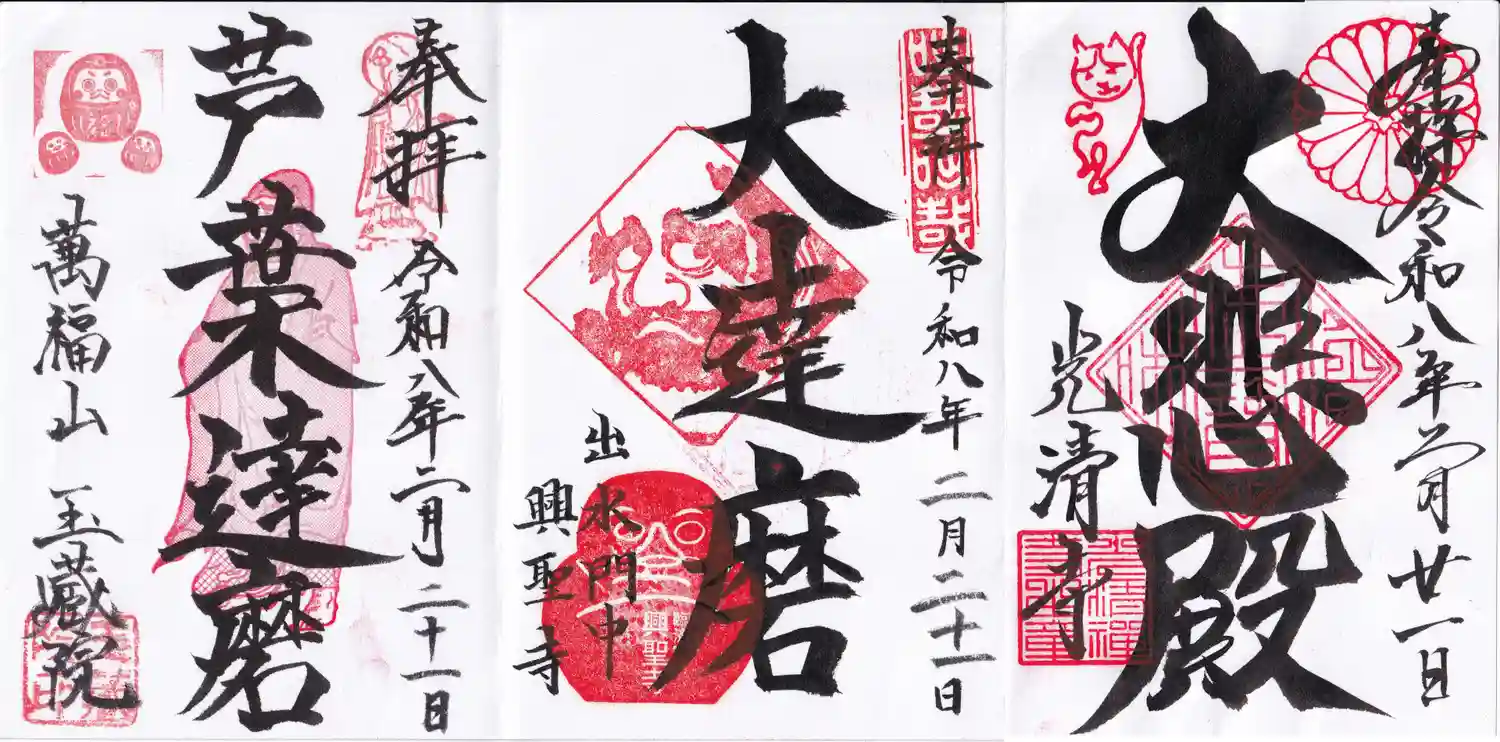 奉拝 令和八年二月廿一日
大悲殿
光清寺
奉拝 令和八年 二月二十一日
大達磨
出水門中
興聖寺
興聖寺
奉拝 令和八年二月二十一日
芦葉達磨
萬福山 玉蔵院